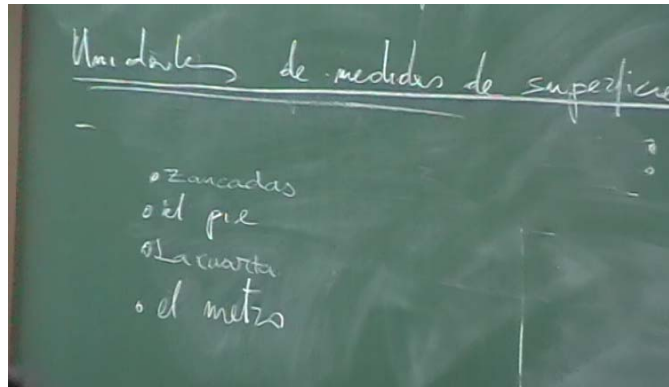 Unidades de medidas de superficie
• Zancadas
• el pie
• La cuarta
• el metro